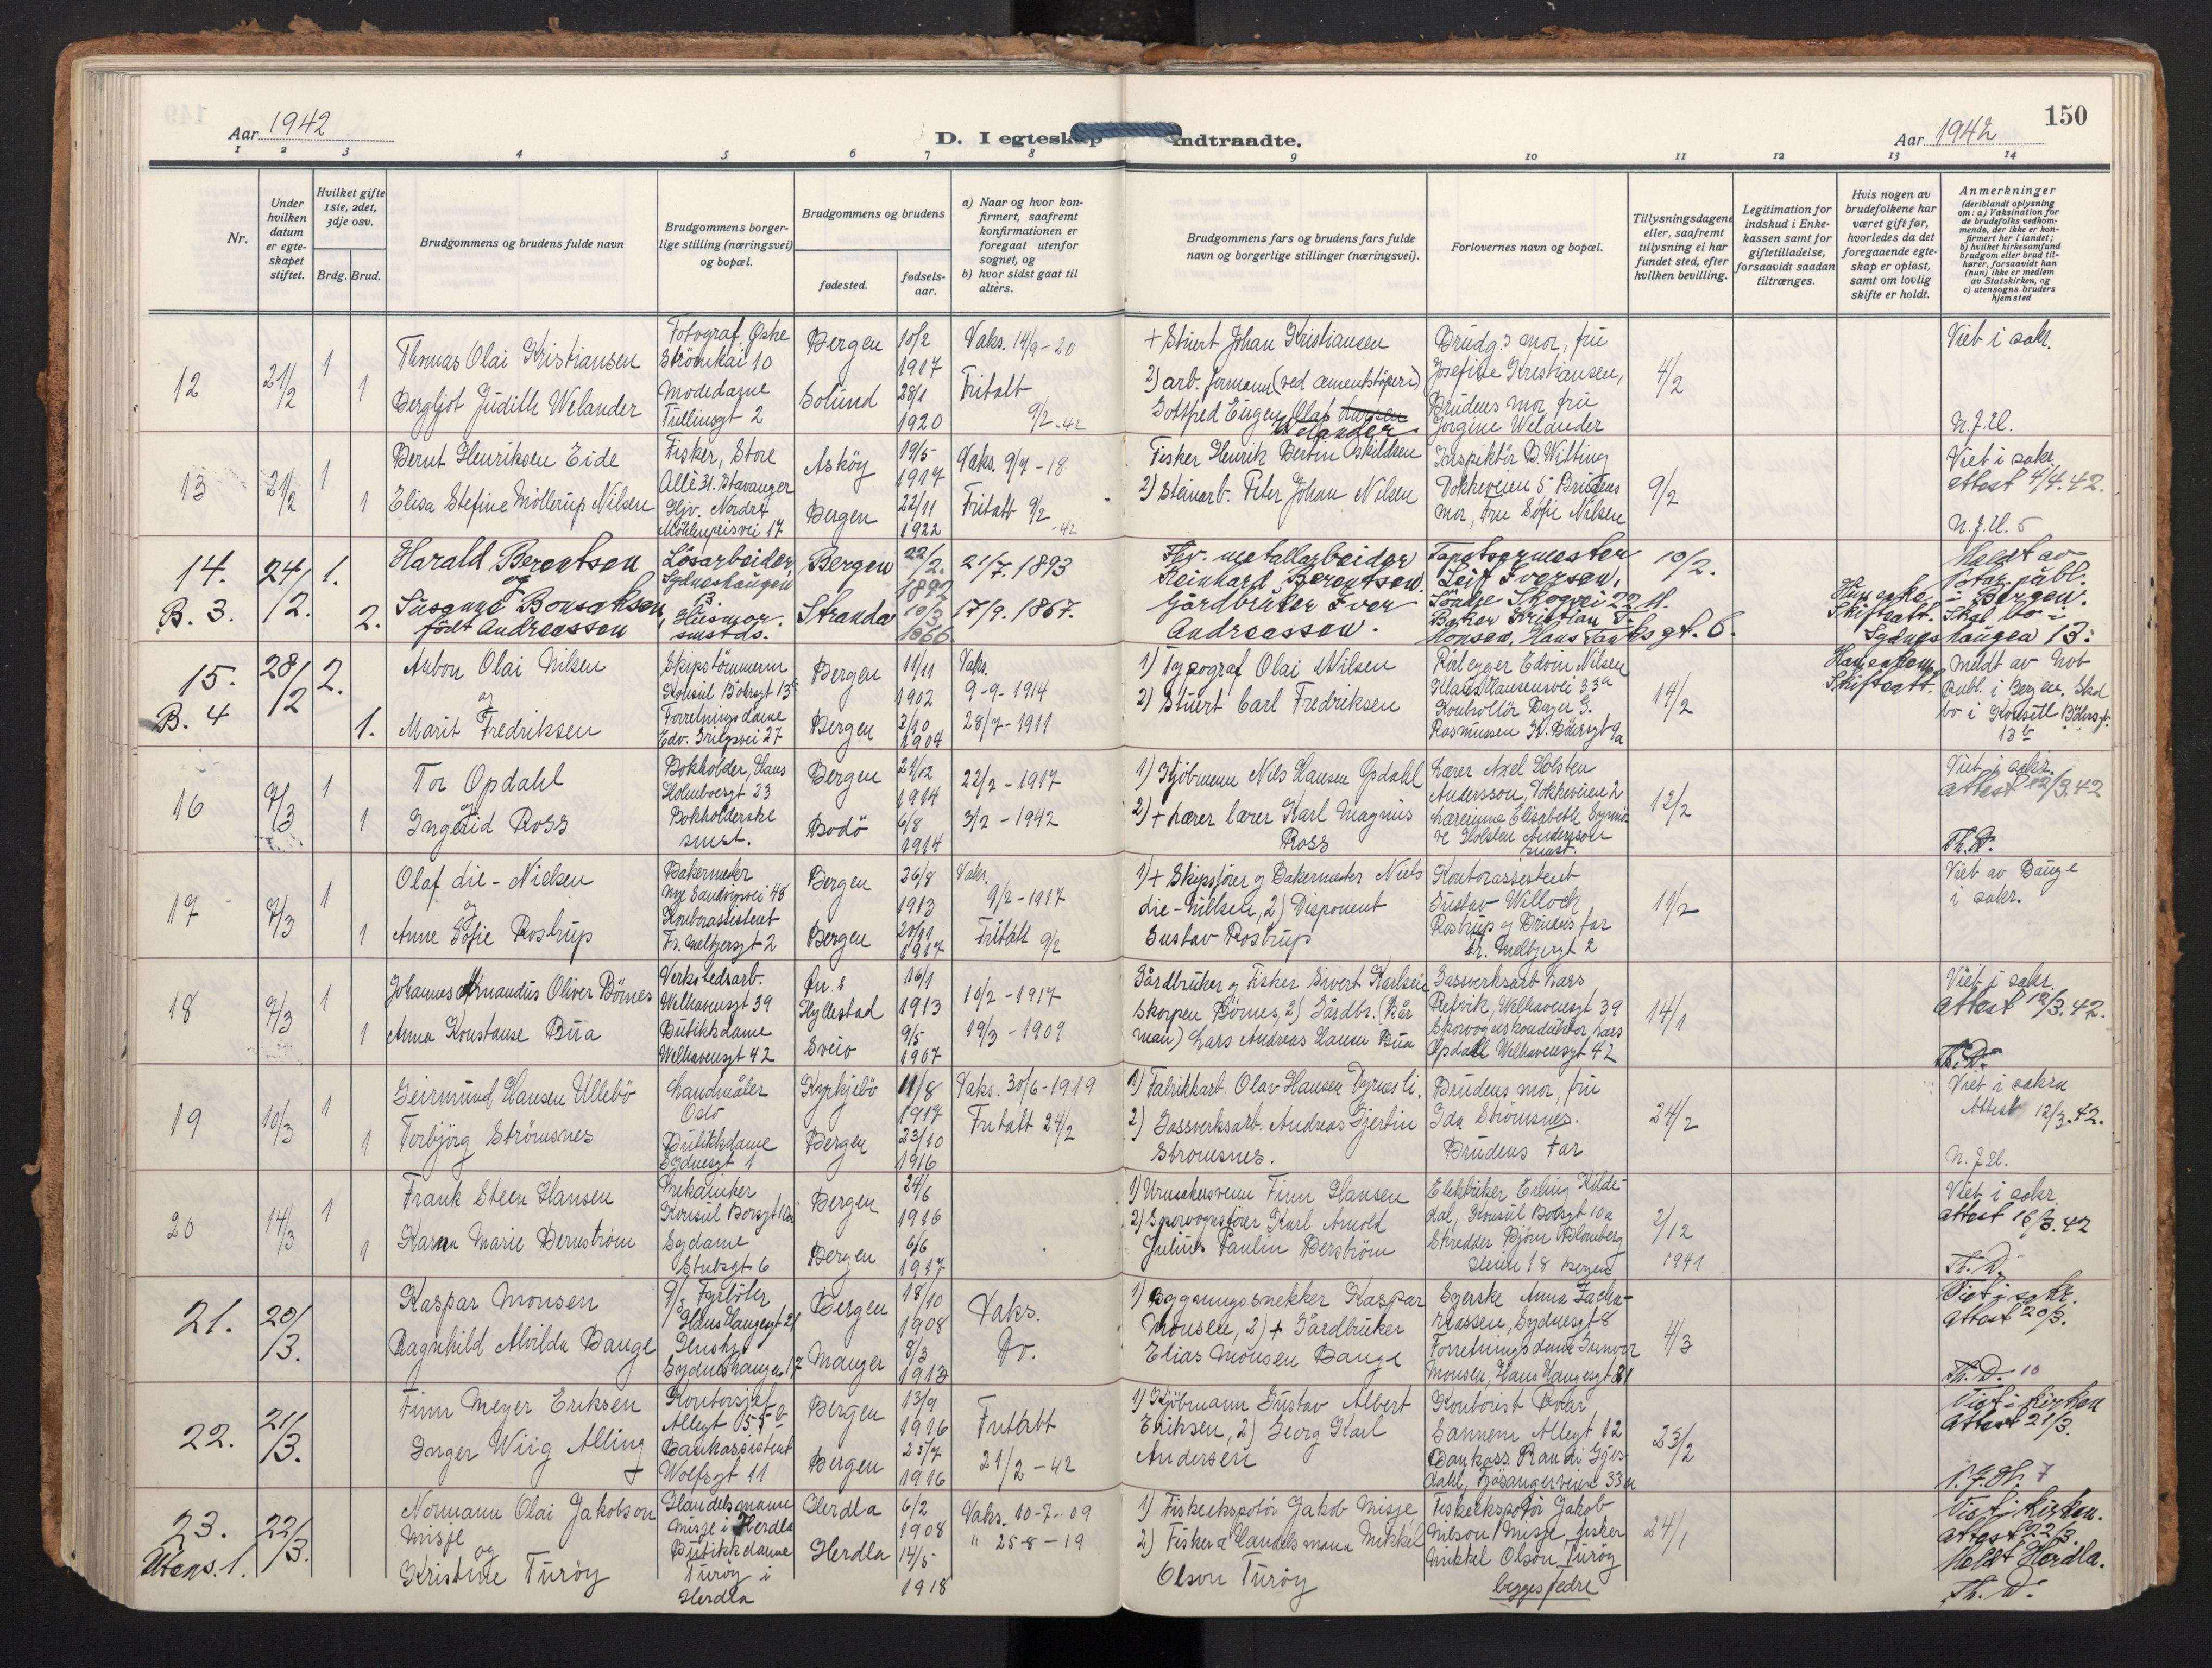 Aar 1942
D. I egteskap indtraadte.
Aar 1942
150
1 2 3 4 5 6 7 8 9 10 11 12 13 14
Nr.
Under hvilken datum er egteskapet stiftet.
Hvilket gifte 1ste, 2det, 3dje osv.
Brdg. Brud.
Brudgommens og brudens fulde navn
Brudgommens borgerlige stilling (næringsvei) og bopæl.
Brudgommens og brudens
fødested.
fødselsaar.
a) Naar og hvor konfirmert, saafremt konfirmationen er foregaat utenfor sognet, og
b) hvor sidst gaat til alters.
Brudgommens fars og brudens fars fulde navn og borgerlige stillinger (næringsvei).
Forlovernes navn og bopæl.
Tillysningsdagene eller, saafremt tillysning ei har fundet sted, efter hvilken bevilling.
Legitimation for indskud i Enkekassen samt for giftetilladelse, forsaavidt saadan tiltrænges.
Hvis nogen av brudefolkene har været gift før, hvorledes da det foregaaende egteskap er opløst, samt om lovlig skifte er holdt.
Anmerkninger (deriblandt oplysning om: a) Vaksination for de brudefolks vedkommende, der ikke er konfirmert her i landet; b) hvilket kirkesamfund brudgom eller brud tilhører, forsaavidt han (hun) ikke er medlem av Statskirken, og c) utensogns bruders hjemsted
12 21/2 1 Thomas Olai Kristiansen Fotograf. Østre Strömkai 10 Bergen 10/2 1917 Vaks. 14/9-20
1 Bergljot Judith Welander Modedame Tullinsgt 2 Solund 28/1 1920 Fritatt 9/2-42
+ Stuert Johan Kristiansen
2) arb. formann (ved sementstöperi) Gottfred Eugen Olaf Welander
Brudg.s mor, fru Josefine Kristiansen, Brudens mor fru Jörgine Welander
4/2
Viet i sakr.
N.J.H.
13 21/2 1 Bernt Henriksen Eide Fisker, Store Allè 31. Stavanger Asköy 19/5- 1917 Vaks. 9/7-18
1 Elisa Stefine Möllerup Nilsen Hjv. Nordre Möhlenprisvei 17 Bergen 22/11 1922 Fritatt 9/2-42
Fisker Henrik Bertin Eskildsen
2) Steinarb. Peter Johan Nilsen
Inspektör B. Witting Dokkeveien 5 Brudens mor, fru Sofie Nilsen
9/2
Viet i sakr.
Attest 4/4.42.
N.J.H. 5
14. B. 3. 24/2. 1. Harald Berentsen Lösarbeider, Sydneshaugen 13. Bergen 22/2. 1892 21/7. 1893
og
2. Susanne Bonsaksen, född Andreassen Husmor, smstds. Stranda 10/3 1866. 17/9. 1867.
Fhv. metallarbeider Reinhard Berentsen.
Gårdbruker Iver Andreassen.
Tapetsermester Leif Iversen, Söndre Skogvei 22 H.
Baker Kristian J. Monsen, Hans Tanksgt. 6.
10/2.
Hun enke Skifteatt.
Meldt av Notar. publ. i Bergen. Skal bo i Sydneshaugen 13.
15. B. 4 28/2 2. Anton Olai Nilsen Skipstömmerm Konsul Börsgt 13b Bergen 11/11 1902 Vaks. 9-9-1914
og
1. Marit Fredriksen Forretningsdame Edv. Griegsvei 27 Bergen 3/10 1904 28/7-1911
1) Typograf Olai Nilsen
2) Stuert Carl Fredriksen
Rörlegger Edvin Nilsen Klaus Hansensvei 33a
Kontrollör Birger G. Rasmussen K. Börsgt 9a
14/2
Han enkem. Skifteatt.
Meldt av Not Publ. i Bergen. Skal bo i Konsul Börsgt. 13b
16 7/3 1 Tor Opdahl Bokholder, Hans Holmboesgt 23 Bergen 21/12 1914 22/2-1917
og
1 Ingerid Ross Bokholderske smst. Bodö 6/8 1914 3/2-1942
1) Kjöbmenn Nils Hansen Opdahl
2) + Lærer lærer Karl Magnus Ross
Lærer Axel Holsten Andersson, Dokkeveien 2
Lærerinne Elisabeth Holsten Andersson smst.
12/2
Viet i sakr.
Attest 12/3.42
Th. D.
17 7/3 1 Olaf die-Nielsen Bakermester Nye Sandviksvei 48 Bergen 26/8 1913 Vaks. 9/2-1917
og
1 Anne Sofie Rostrup Kontorassistent Fr. Meltzersgt 2 Bergen 20/11 1917 Fritatt 9/2
1) + Skipsförer og Bakermester Niels die-Nillsen, 2) Disponent Gustav Rostrup
Kontorassistent Gustav Willoch Rostrup og Brudens far Fr. Meltzersgt 2
11/2
Viet av Bauge i sakr.
18 7/3 1 Johannes Amandus Oliver Börnes Verkstedsarb. Welhavensgt 39 Hyllestad 16/1 1913 10/2-1917
1 Anna Konstanse Bua Butikkdame Welhavensgt 42 Sveio 9/5 1907 19/3-1909
Gårdbruker og Fisker Sivert Karlsen Skorpen Börnes, 2) Gårdbr. Lars Andreas Hansen Bua
Gassverksarb Lars Refvik, Welhavensgt 39
Sporvognskonduktör Lars Opdahl Welhavensgt 42
14/1
Viet i sakr.
Attest 12/3.42.
Th. D.
19 10/3 1 Geirmund Hansen Ullebö Landmåler Oslo Kyrkjebö 11/8 1917 Vaks. 30/6-1919
1 Torbjörg Strömsnes Butikkdame Sydnesgt 1 Bergen 23/10 1916 Fritatt 24/2
1) Fabrikkarb. Olav Hansen Dyrnesli.
2) Gassverksarb. Andreas Gjertin Stromsnes.
Brudens mor, fru Ida Strömsnes. Brudens far
24/2
Viet i sakra
Attest 12/3.42.
N.J.H.
20 14/3 1 Frank Steen Hansen Mekaniker Konsul Borsgt 10a Bergen 24/6 1916
1 Karna Marie Bernström Sydame Stubsgt 6 Bergen 6/6 1917
1) Urmakersvenn Finn Hansen
2) Sporvognsförer Karl Arnold Julius Paulin Berström
Elektriker Erling Kildedal, Konsul Borsgt 10a
Skredder Björn Blomberg 18 Bergen
2/12 1941
Viet i sakr.
Attest 16/3.42
Th. D.
21. 20/3. Kaspar Monsen Fyrböter Hans Haugesgt 21 Bergen 18/10 1908 Vaks.
Ragnhild Alvilda Bauge Hushj. Sydneshaugen 17 Manger 8/3 1913 Do.
1) Bygningssnekker Kaspar Monsen, 2) + Gårdbruker Elias Monsen Bauge
Syerske Anna Zachariassen, Sydnesgt 8
Forretningsdame Gunvor Monsen, Hans Haugesgt 21
4/3
Viet i sakr.
Attest 20/3.
Th. D. 10
22. 21/3. Finn Meyer Eriksen Kontorsjef Allegt 55b Bergen 13/9 1916 Fritatt
Inger Wiig Alling Bankassistent Wolfsgt 11 Bergen 25/7 1916 21/2-42
1) Kjöbmann Gustav Albert Eriksen, 2) Georg Karl Andersen
Kontorist Sannem Allegt 12
Bankass. Randi Gjesdahl, Fjösangerveien 33a
23/2
Viet i kirken
Attest 21/3.
N.J.H. 7
23. Utens. 1. 22/3. Normann Olai Jakobson Misje Handelsmann Misje i Herdla Herdla 6/2 1908 Vaks. 10-7-09
og
Kristine Turöy Butikkdame Turöy i Herdla Herdla 14/5- 1918 " 25-8-19
1) Fiskeekspotör Jakob Misje
2) Fisker & Handelsmann Mikkel Olson Turöy
Fiskeekspotör Jakob Nilson Misje fisker Mikkel Olson Turöy begges fedre
24/1
Viet i kirken.
Attest 22/3.
Meldt Herdla.
Th. D.